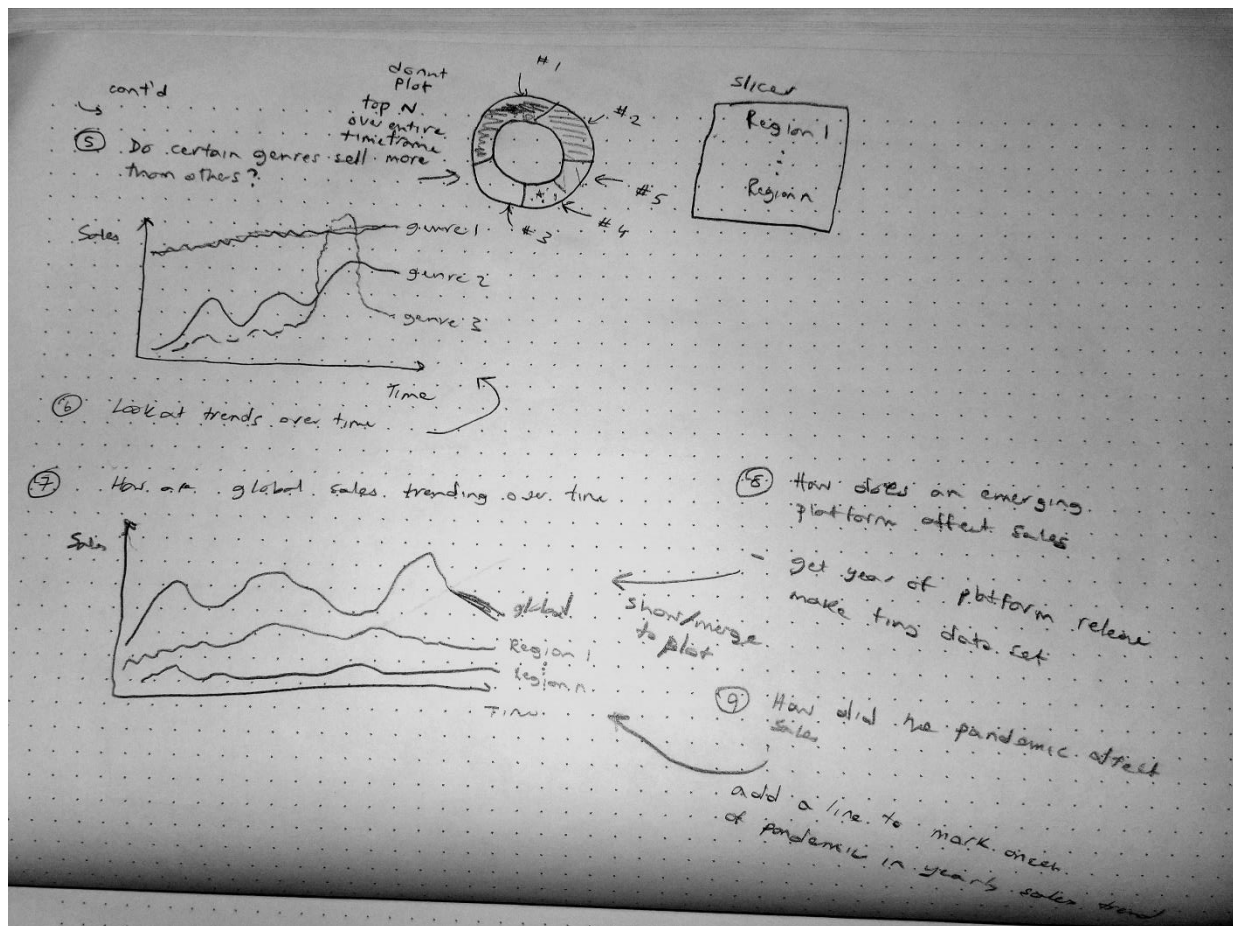 cont'd
donut
plot
top N
over entire
timeframe
#1
#2
#5
#4
#3
slicer
Region 1
Region n
5 Do certain genres sell more
than others?
Sales
genre 1
genre 2
genre 3
Time
6 Look at trends over time
7 How are global sales trending over time
Sales
global
Region 1
Region n
Time
show/merge
to plot
8 How does an emerging
platform affect sales
- get year of platform release
make tiny data set
9 How did the pandemic affect
sales
add a line to mark
of pandemic in yearly sales trend